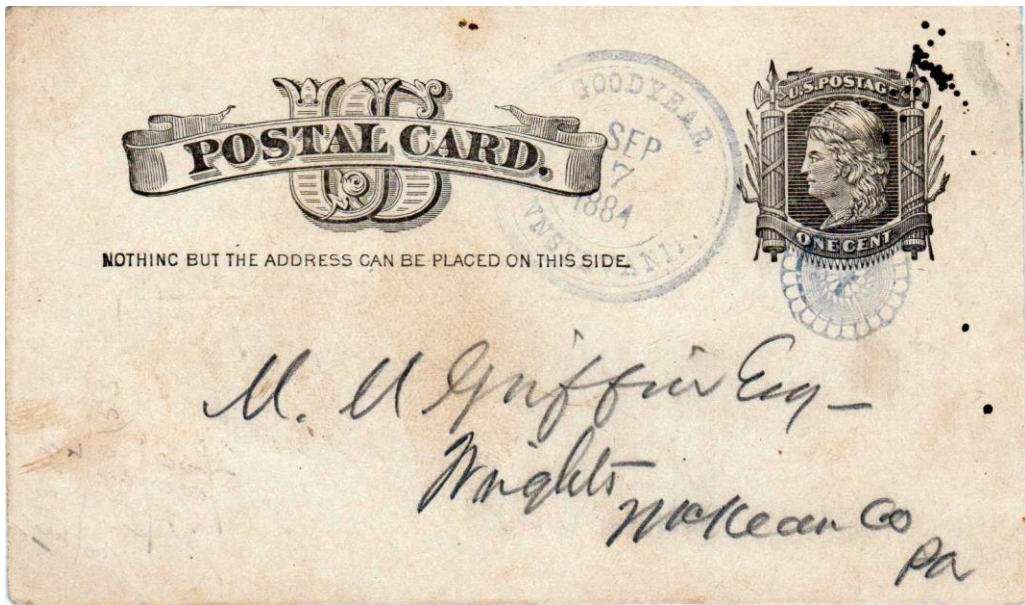 US
POSTAL CARD.
NOTHING BUT THE ADDRESS CAN BE PLACED ON THIS SIDE.
GOODYEAR,
SEP
7
1884
U.S. POSTAGE
ONE CENT
M. M Griffin Esq -
Wrights
McKean Co
Pa